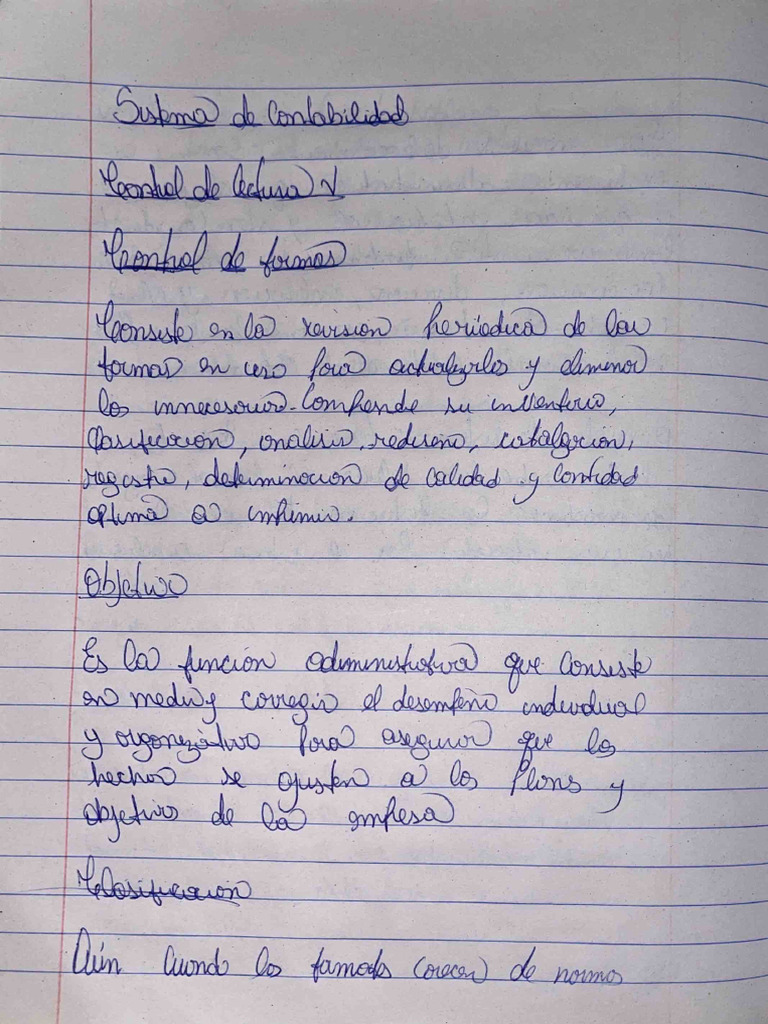 Sistema de Contabilidad
Control de lectura
Control de formas
Consiste en la revision periodica de las
formas en uso para actualizarlos y eliminar
los innecesarios. Comprende su inventario,
clasificacion, analisis, rediseño, catalogacion,
registro, determinacion de calidad y cantidad
optima a imprimir.
Objetivo
Es la función administrativa que consiste
en medir y corregir el desempeño individual
y organizativo para asegurar que los
hechos se ajusten a los Plans y
objetivos de la empresa
Clasificacion
Aún cuando los carecen de normas